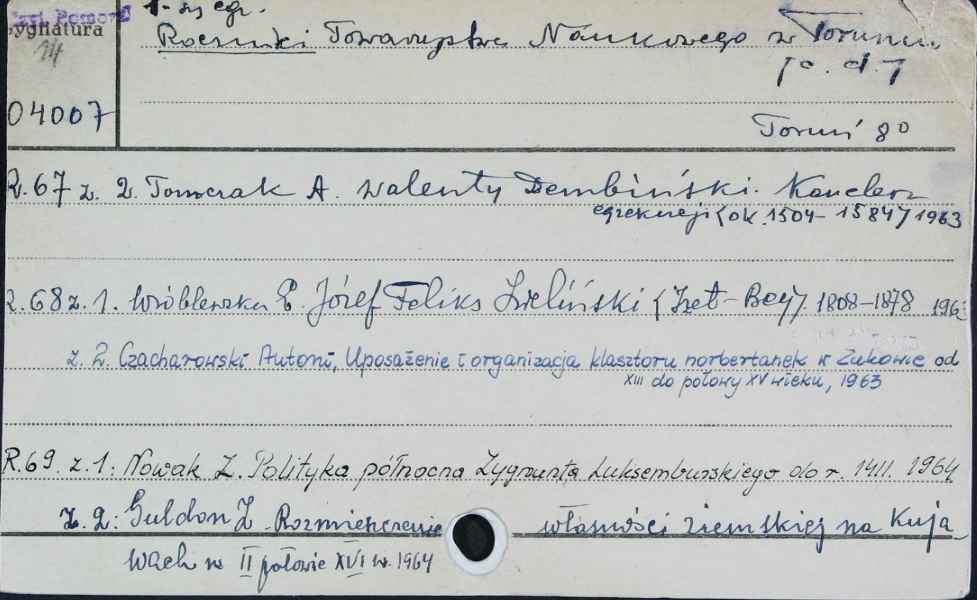 Sygnatura
14
04007
1-szy egz.
Roczniki Towarzystwa Naukowego w Toruniu
/c.d./
Toruń 80
R.67 z. 2. Tomczak A. Walenty Dembiński. Kanclerz
egzekucji (ok. 1504-1584) 1963
R.68 z. 1. Wróblewska E. Józef Feliks Zieliński (Izet-Bey). 1808-1878
z. 2. Czacharowski Antoni, Uposażenie i organizacja klasztoru norbertanek w Żukowie od
XIII do połowy XV wieku, 1963
R.69. z.1: Nowak Z. Polityka północna Zygmunta Luksemburskiego do r. 1411. 1964
z. 2: Guldon Z. Rozmieszczenie własności ziemskiej na Kuja
wach w II połowie XVI w. 1964